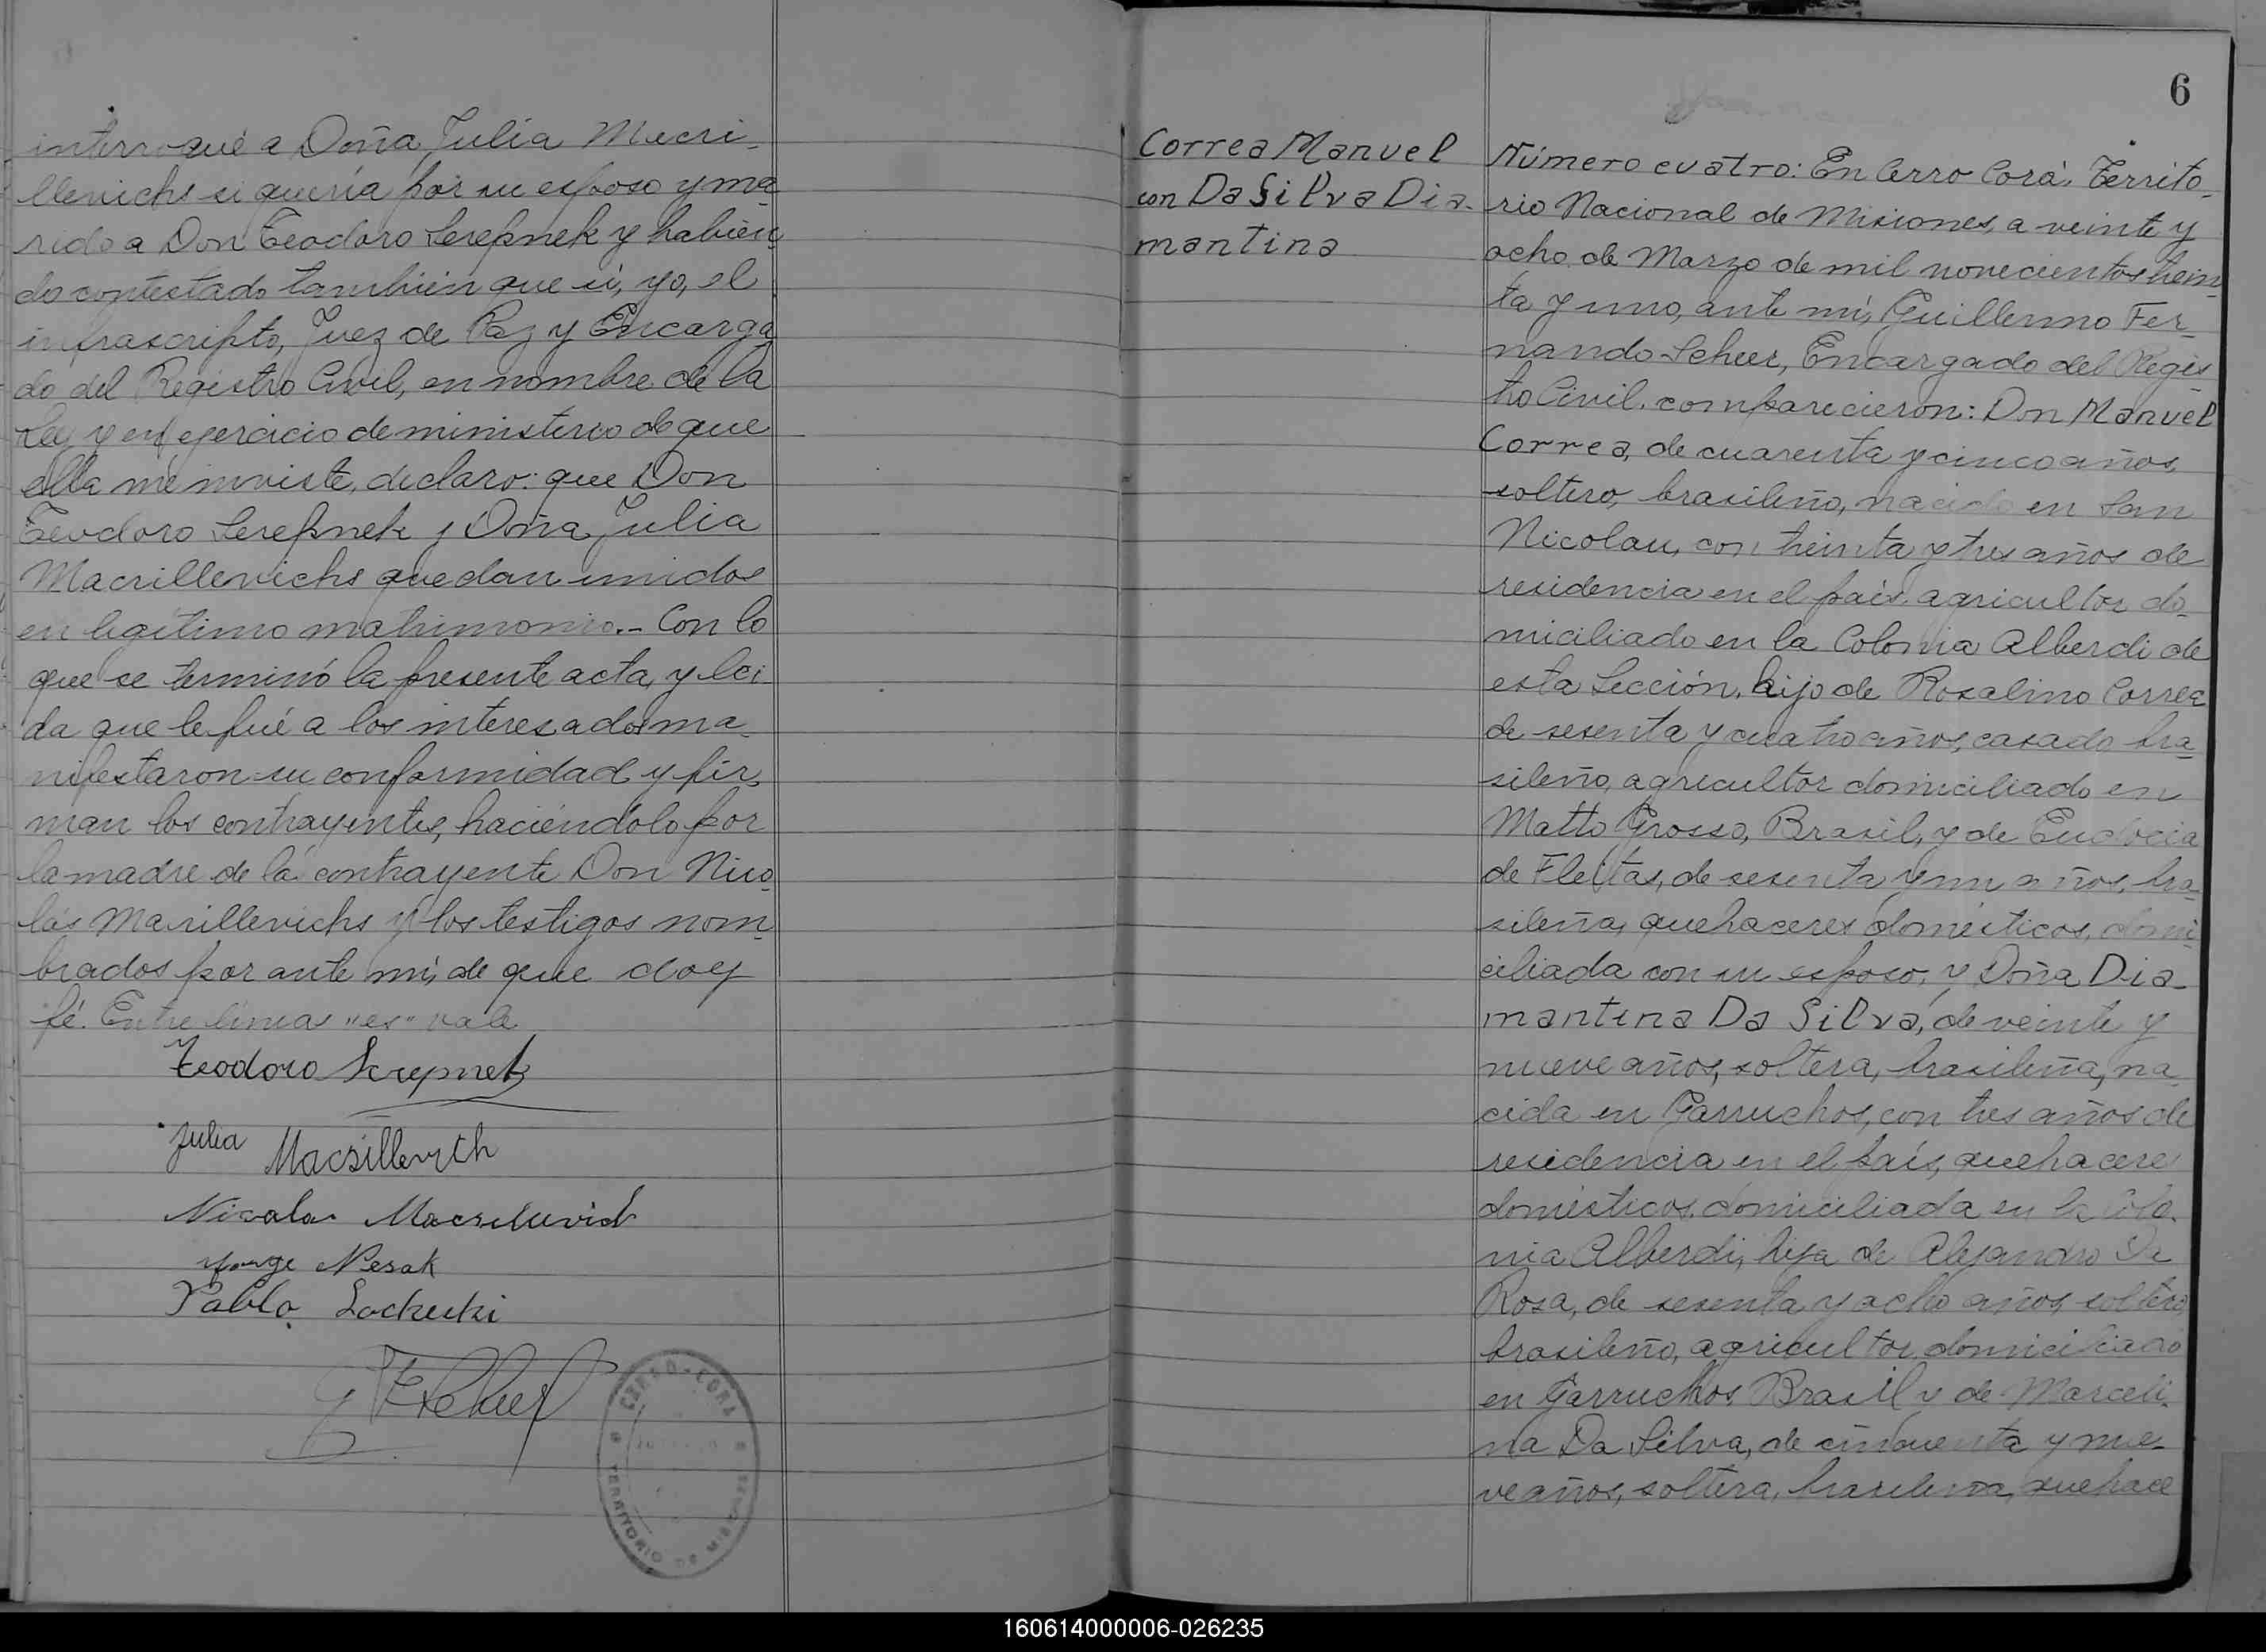 interrogué a Doña Julia Mucri-
llevichs si quería por su esposo y ma
rido a Don Teodoro Serepnek y habien
do contestado también que si, yo, el
infrascripto, Juez de Paz y Encarga
do del Registro Civil, en nombre de la
Ley y en ejercicio de ministerio de que
ella me inviste, declaro: que Don
Teodoro Serepnek y Doña Julia
Macrillevichs quedan unidos
en legítimo matrimonio.- Con lo
que se terminó la presente acta, y lei
da que le fué a los interesados ma-
nifestaron su conformidad y fir-
man los contrayentes, haciéndolo por
la madre de la contrayente Don Nico-
lás Macrillevichs y los testigos nom-
brados por ante mi, de que doy
fé. Entre lineas "es" vale
Teodoro Screpnek
Julia Macsillevich
Nicolas
Jorge Nesak
Pablo
CERRO-CORA
TERRITORIO
6
Correa Manuel
con Da Silva Dia-
mantina
Número cuatro: En Cerro Corá, Territo-
rio Nacional de Misiones, a veinte y
ocho de Marzo de mil novecientos trein
ta y uno, ante mí, Guillermo Fer-
nando Scheer, Encargado del Regis
tro Civil, comparecieron: Don Manuel
Correa, de cuarenta y cinco años,
soltero, brasileño, nacido en San
Nicolau, con treinta y tres años de
residencia en el país, agricultor do-
miciliado en la Colonia Alberdi de
esta Sección, hijo de Rosalino Correa
de sesenta y cuatro años, casado bra-
sileño, agricultor domiciliado en
Matto Grosso, Brasil, y de Eudocia
de Fleitas, de sesenta y un años, bra-
sileña, quehaceres domésticos, domi-
ciliada con su esposo, y Doña Dia-
mantina Da Silva, de veinte y
nueve años, soltera, brasileña, na-
cida en Garruchos, con tres años de
residencia en el país, quehaceres
domésticos, domiciliada en la Colo-
nia Alberdi, hija de Alejandro Da
Rosa, de sesenta y ocho años, soltero,
brasileño, agricultor, domiciliado
en Garruchos, Brasil y de Marceli-
na Da Silva, de cincuenta y nue-
ve años, soltera, brasileña, quehace
160614000006-026235